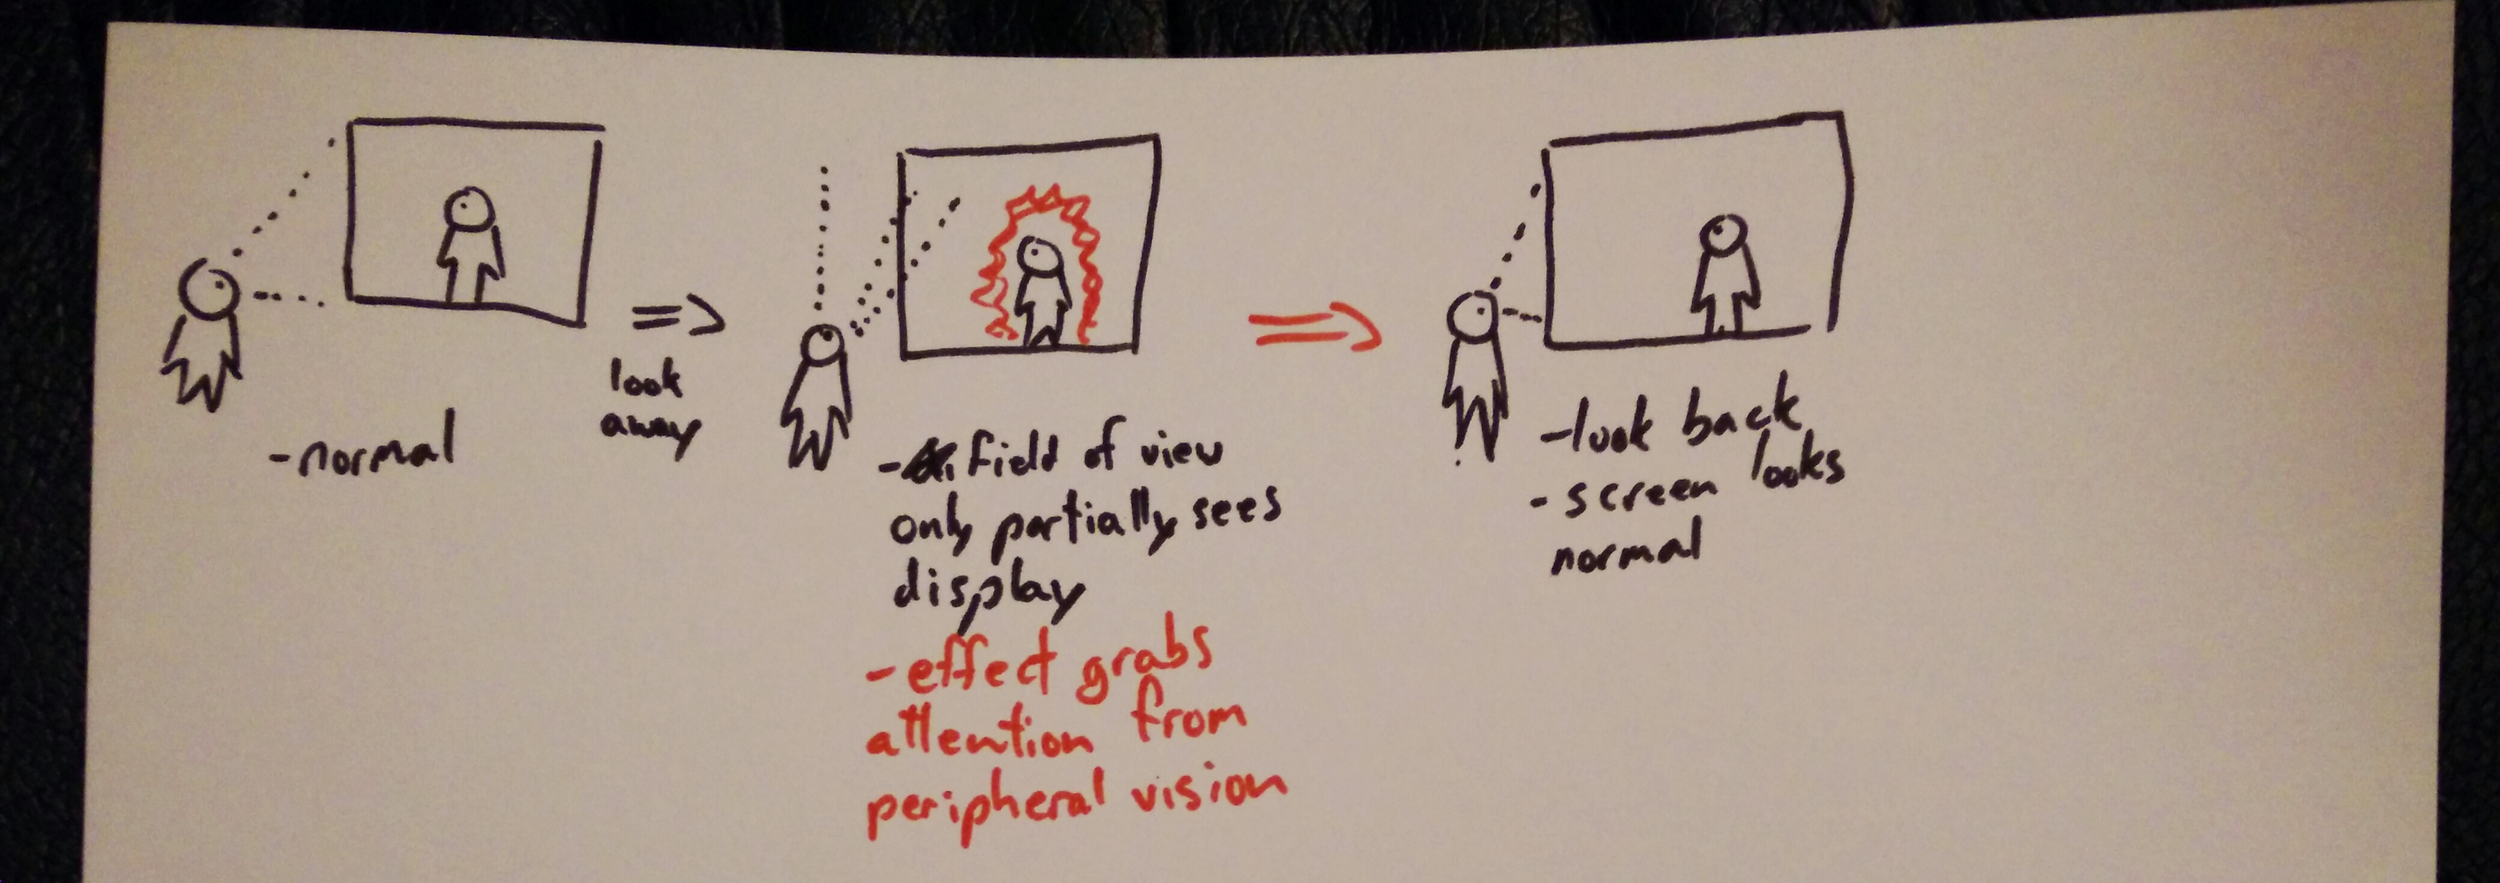 -normal
look
away
- field of view
only partially sees
display
-effect grabs
attention from
peripheral vision
-look back
- screen looks
normal